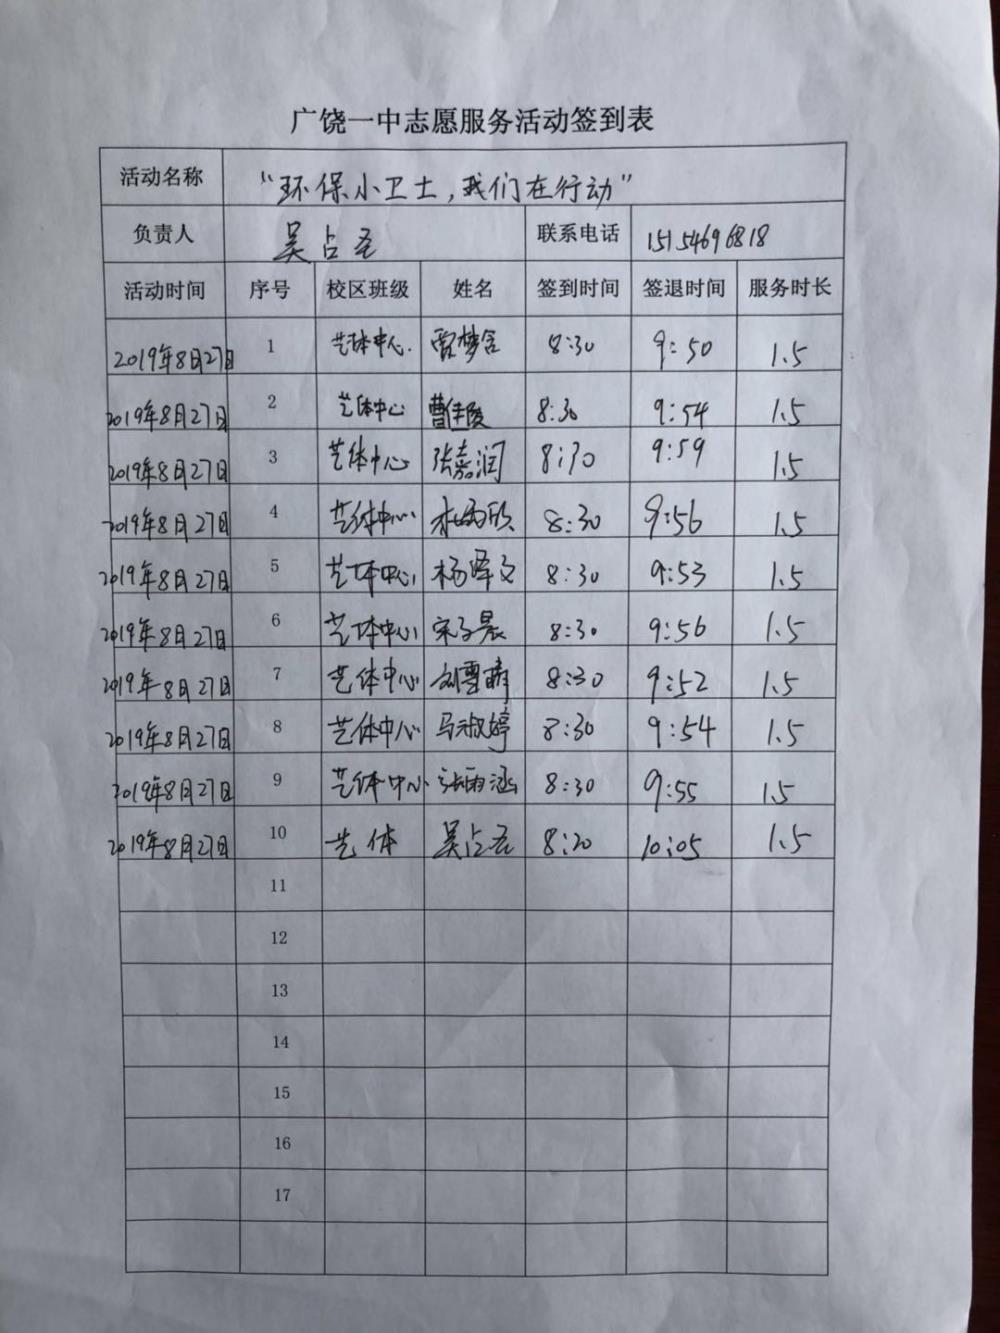 广饶一中志愿服务活动签到表
活动名称 "环保小卫士,我们在行动"
负责人 吴占圣 联系电话 15154696818
活动时间 序号 校区班级 姓名 签到时间 签退时间 服务时长
2019年8月27日 1 艺体中心. 雷梦含 8:30 9:50 1.5
2019年8月27日 2 艺体中心 曹佳俊 8:30 9:54 1.5
2019年8月27日 3 艺体中心 张嘉润 8:30 9:59 1.5
2019年8月27日 4 艺体中心 8:30 9:56 1.5
2019年8月27日 5 艺体中心 杨泽文 8:30 9:53 1.5
2019年8月27日 6 艺体中心 宋子晨 8:30 9:56 1.5
2019年8月27日 7 艺体中心 刘雪萌 8:30 9:52 1.5
2019年8月27日 8 艺体中心 马淑婷 8:30 9:54 1.5
2019年8月27日 9 艺体中心 张雨涵 8:30 9:55 1.5
2019年8月27日 10 艺体 吴占圣 8:20 10:05 1.5
11
12
13
14
15
16
17